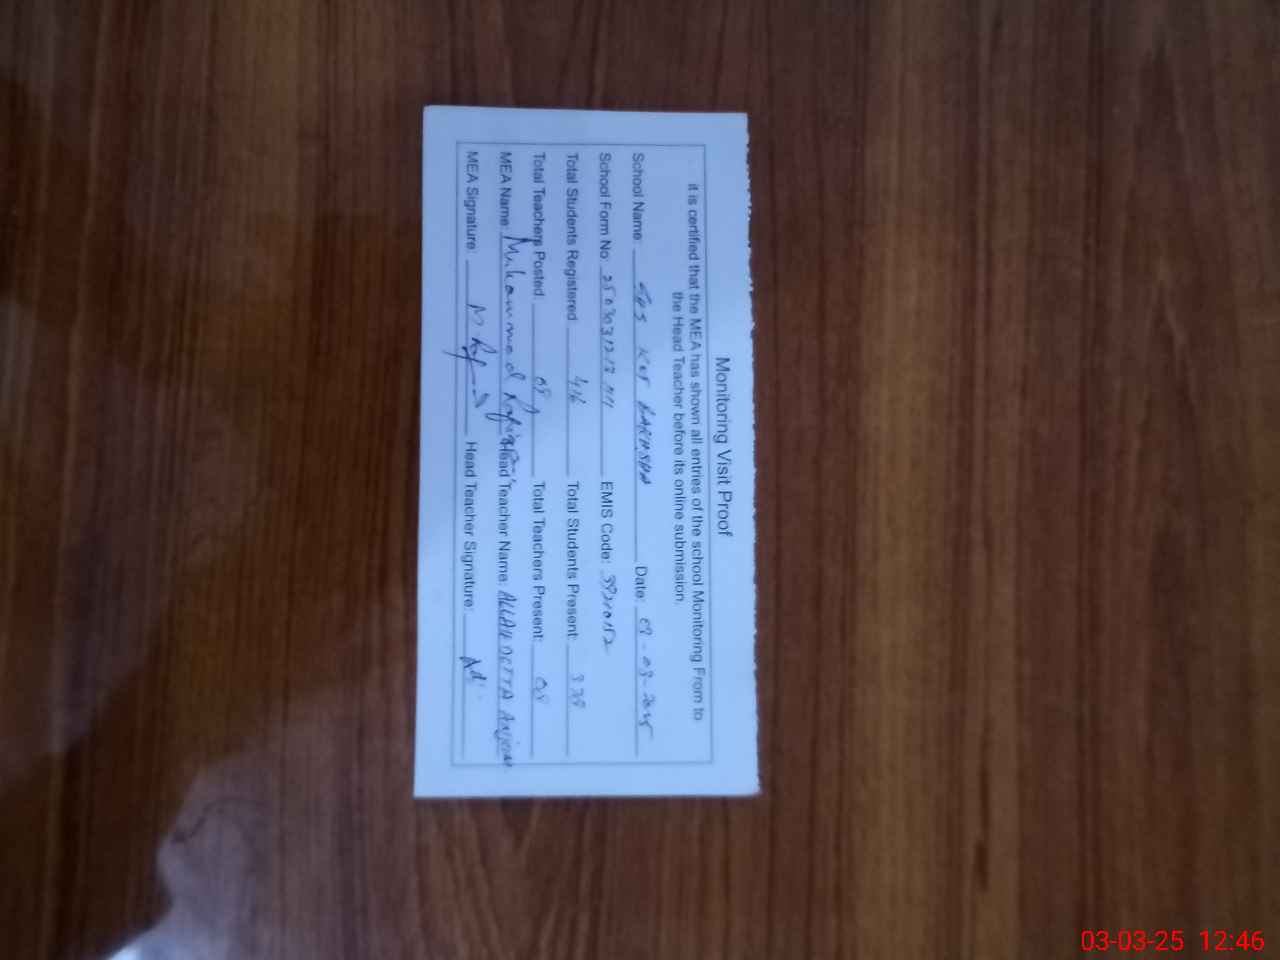 Monitoring Visit Proof
it is certified that the MEA has shown all entries of the school Monitoring From to
the Head Teacher before its online submission.
School Name: GPS KOT Date: 03-03-2025
School Form No: EMIS Code:
Total Students Registered 416 Total Students Present:
Total Teachers Posted: 09 Total Teachers Present:
MEA Name: Muhammad Head Teacher Name: ALLAH DITTA Anjum
MEA Signature: Head Teacher Signature:
03-03-25 12:46